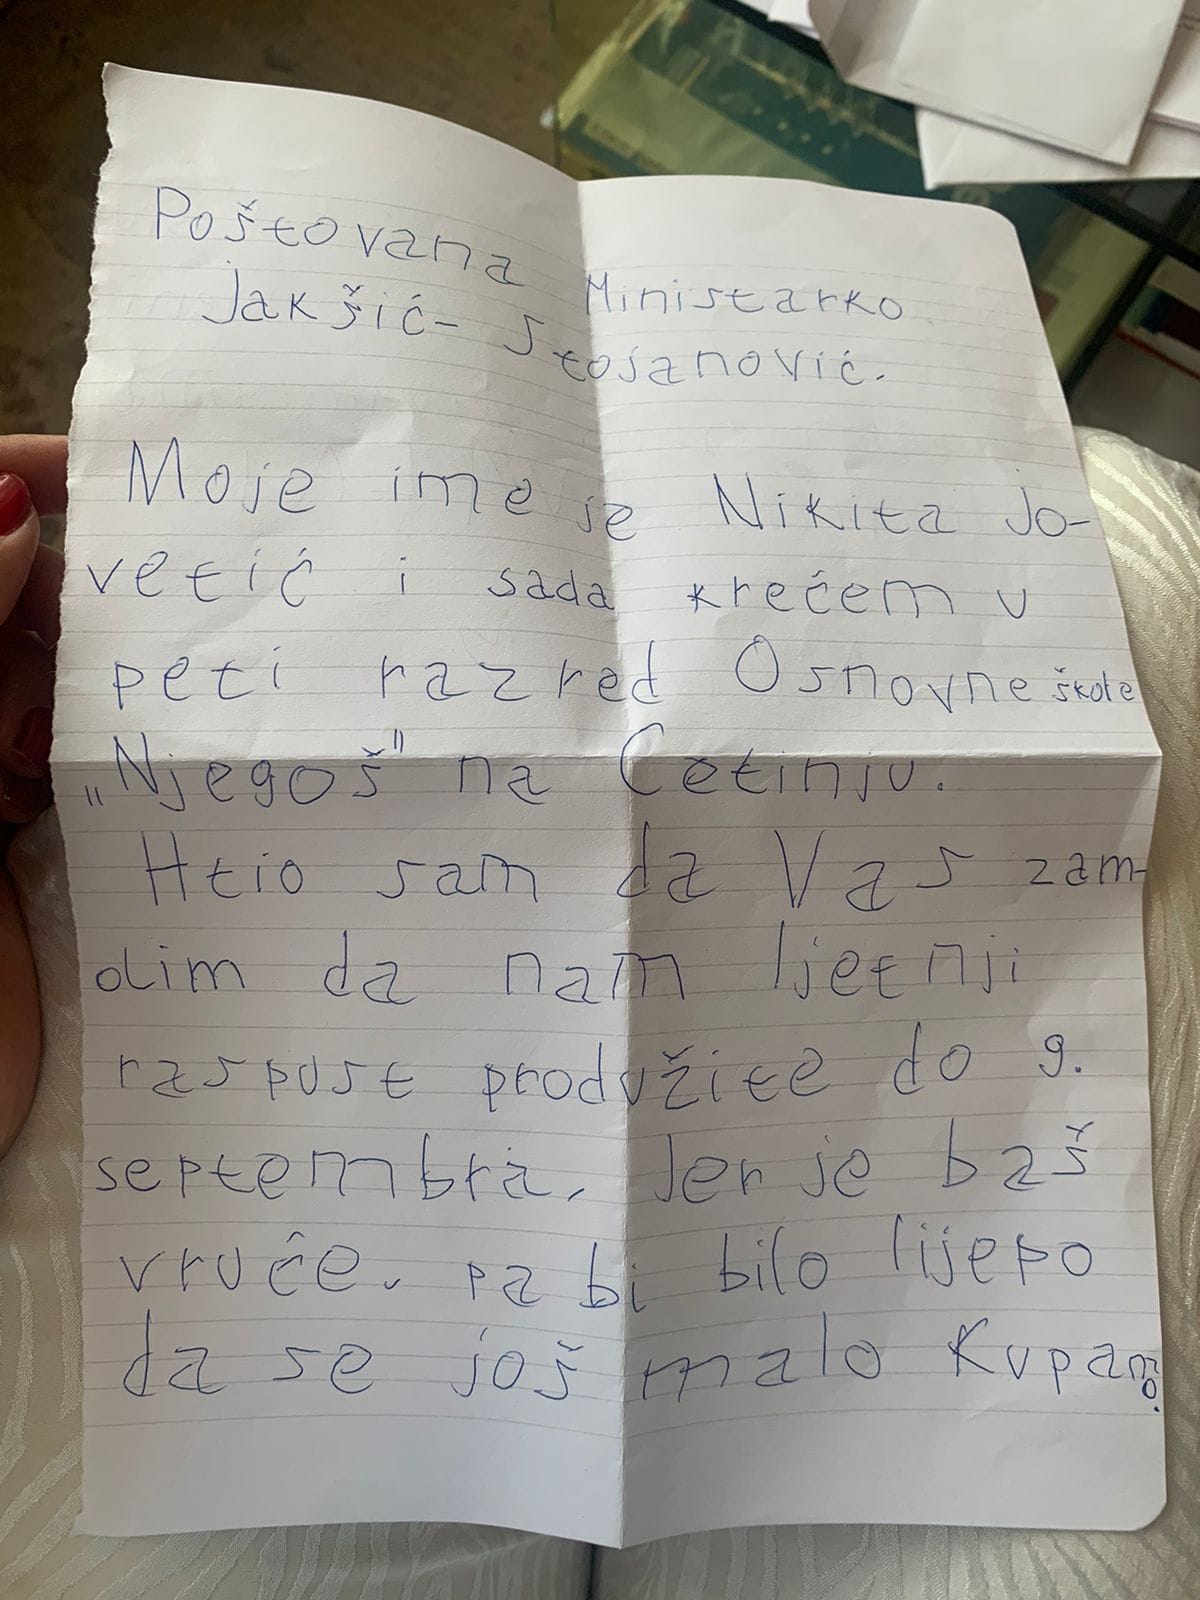 Poštovana Ministarko
Jakšić-Stojanović.
Moje ime je Nikita Jo-
vetić i sada krećem u
peti razred Osnovne škole
„Njegoš" na Cetinju.
Htio sam da Vas zam-
olim da nam ljetnji
raspust produžite do 9.
septembra, Jer je baš
vruće. pa bi bilo lijepo
da se još malo Kupamo.